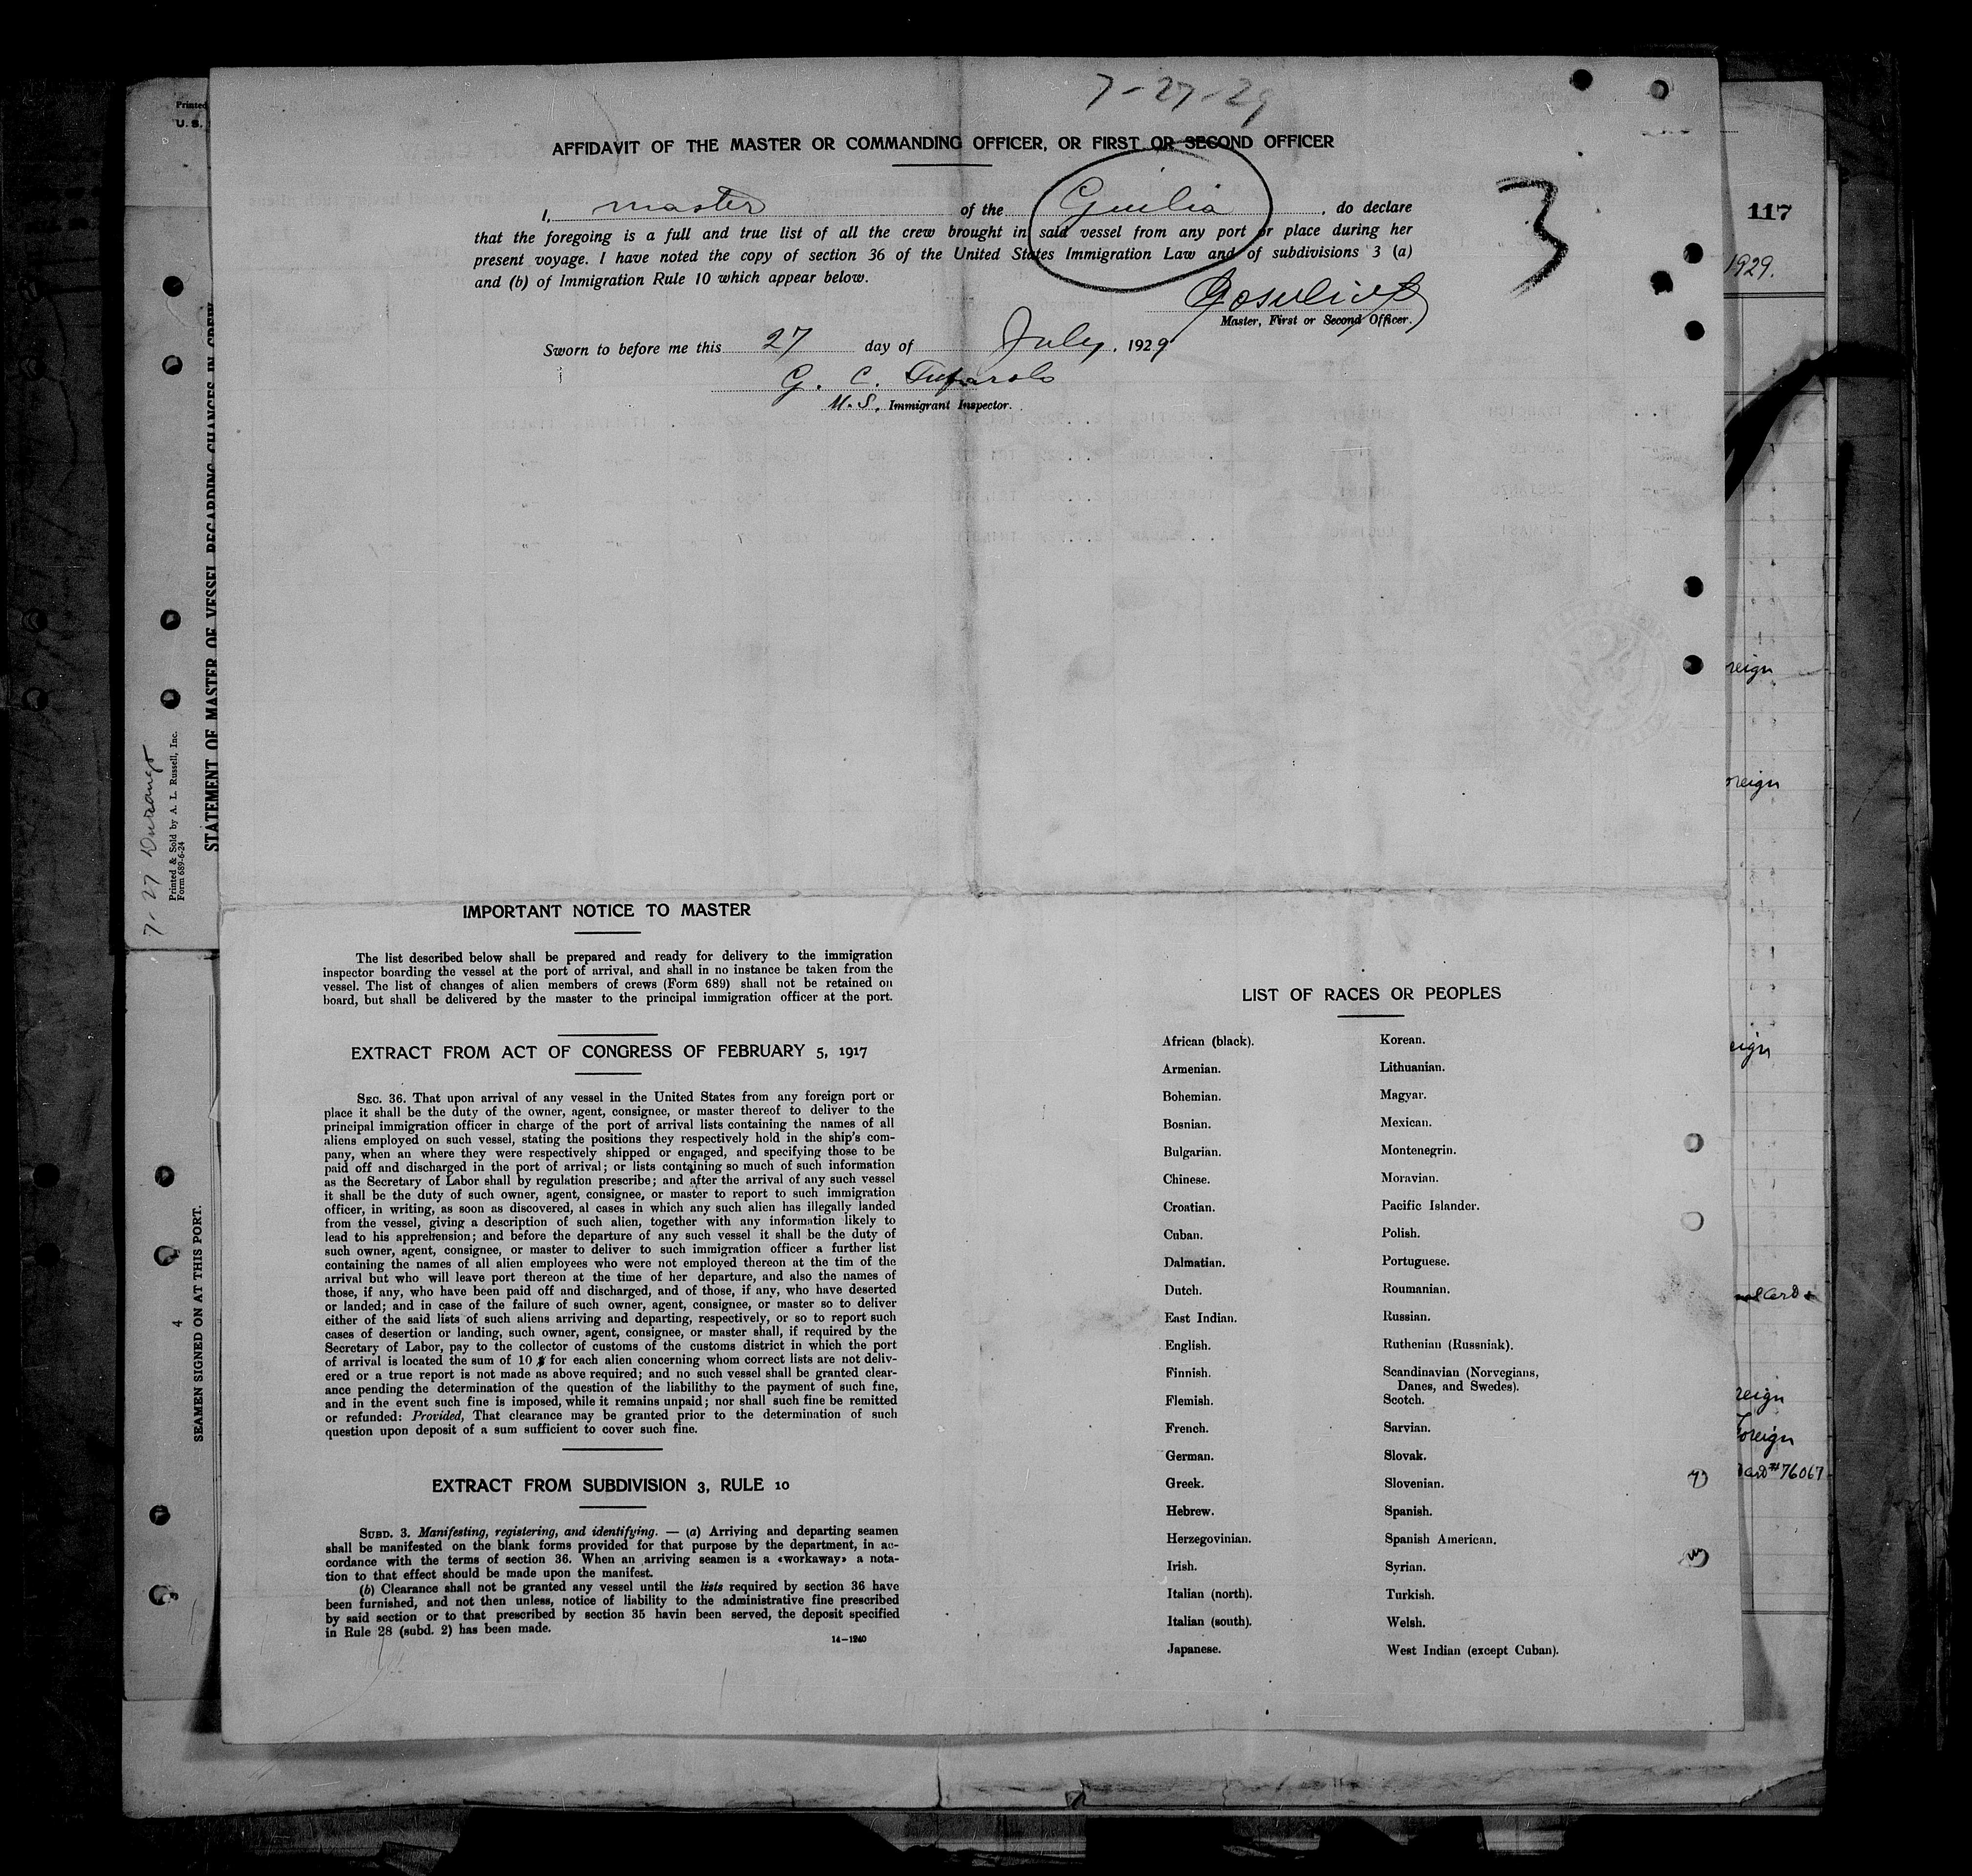 7-27-29
AFFIDAVIT OF THE MASTER OR COMMANDING OFFICER, OR FIRST OR SECOND OFFICER
I, master of the Giulia, do declare
that the foregoing is a full and true list of all the crew brought in said vessel from any port or place during her
present voyage. I have noted the copy of section 36 of the United States Immigration Law and of subdivisions 3 (a)
and (b) of Immigration Rule 10 which appear below.
3
Master, First or Second Officer.
Sworn to before me this 27 day of July, 1929
G. C.
U.S. Immigrant Inspector.
IMPORTANT NOTICE TO MASTER
The list described below shall be prepared and ready for delivery to the immigration
inspector boarding the vessel at the port of arrival, and shall in no instance be taken from the
vessel. The list of changes of alien members of crews (Form 689) shall not be retained on
board, but shall be delivered by the master to the principal immigration officer at the port.
EXTRACT FROM ACT OF CONGRESS OF FEBRUARY 5, 1917
SEC. 36. That upon arrival of any vessel in the United States from any foreign port or
place it shall be the duty of the owner, agent, consignee, or master thereof to deliver to the
principal immigration officer in charge of the port of arrival lists containing the names of all
aliens employed on such vessel, stating the positions they respectively hold in the ship's com-
pany, when an where they were respectively shipped or engaged, and specifying those to be
paid off and discharged in the port of arrival; or lists containing so much of such information
as the Secretary of Labor shall by regulation prescribe; and after the arrival of any such vessel
it shall be the duty of such owner, agent, consignee, or master to report to such immigration
officer, in writing, as soon as discovered, al cases in which any such alien has illegally landed
from the vessel, giving a description of such alien, together with any information likely to
lead to his apprehension; and before the departure of any such vessel it shall be the duty of
such owner, agent, consignee, or master to deliver to such immigration officer a further list
containing the names of all alien employees who were not employed thereon at the tim of the
arrival but who will leave port thereon at the time of her departure, and also the names of
those, if any, who have been paid off and discharged, and of those, if any, who have deserted
or landed; and in case of the failure of such owner, agent, consignee, or master so to deliver
either of the said lists of such aliens arriving and departing, respectively, or so to report such
cases of desertion or landing, such owner, agent, consignee, or master shall, if required by the
Secretary of Labor, pay to the collector of customs of the customs district in which the port
of arrival is located the sum of 10 $ for each alien concerning whom correct lists are not deliv-
ered or a true report is not made as above required; and no such vessel shall be granted clear-
ance pending the determination of the question of the liabilithy to the payment of such fine,
and in the event such fine is imposed, while it remains unpaid; nor shall such fine be remitted
or refunded: Provided, That clearance may be granted prior to the determination of such
question upon deposit of a sum sufficient to cover such fine.
EXTRACT FROM SUBDIVISION 3, RULE 10
SUBD. 3. Manifesting, registering, and identifying. — (a) Arriving and departing seamen
shall be manifested on the blank forms provided for that purpose by the department, in ac-
cordance with the terms of section 36. When an arriving seamen is a «workaway» a nota-
tion to that effect should be made upon the manifest.
(b) Clearance shall not be granted any vessel until the lists required by section 36 have
been furnished, and not then unless, notice of liability to the administrative fine prescribed
by said section or to that prescribed by section 35 havin been served, the deposit specified
in Rule 28 (subd. 2) has been made.
14—1240
LIST OF RACES OR PEOPLES
African (black).
Armenian.
Bohemian.
Bosnian.
Bulgarian.
Chinese.
Croatian.
Cuban.
Dalmatian.
Dutch.
East Indian.
English.
Finnish.
Flemish.
French.
German.
Greek.
Hebrew.
Herzegovinian.
Irish.
Italian (north).
Italian (south).
Japanese.
Korean.
Lithuanian.
Magyar.
Mexican.
Montenegrin.
Moravian.
Pacific Islander.
Polish.
Portuguese.
Roumanian.
Russian.
Ruthenian (Russniak).
Scandinavian (Norvegians,
Danes, and Swedes).
Scotch.
Sarvian.
Slovak.
Slovenian.
Spanish.
Spanish American.
Syrian.
Turkish.
Welsh.
West Indian (except Cuban).
Printed
U. S.
STATEMENT OF MASTER OF VESSEL REGARDING CHANGES IN CREW
Printed & Sold by A. L. Russell, Inc.
Form 689-6-24
7-27 Durango
SEAMEN SIGNED ON AT THIS PORT.
4
117
1929.
reign
oreign
eign
reign
Foreign
76067